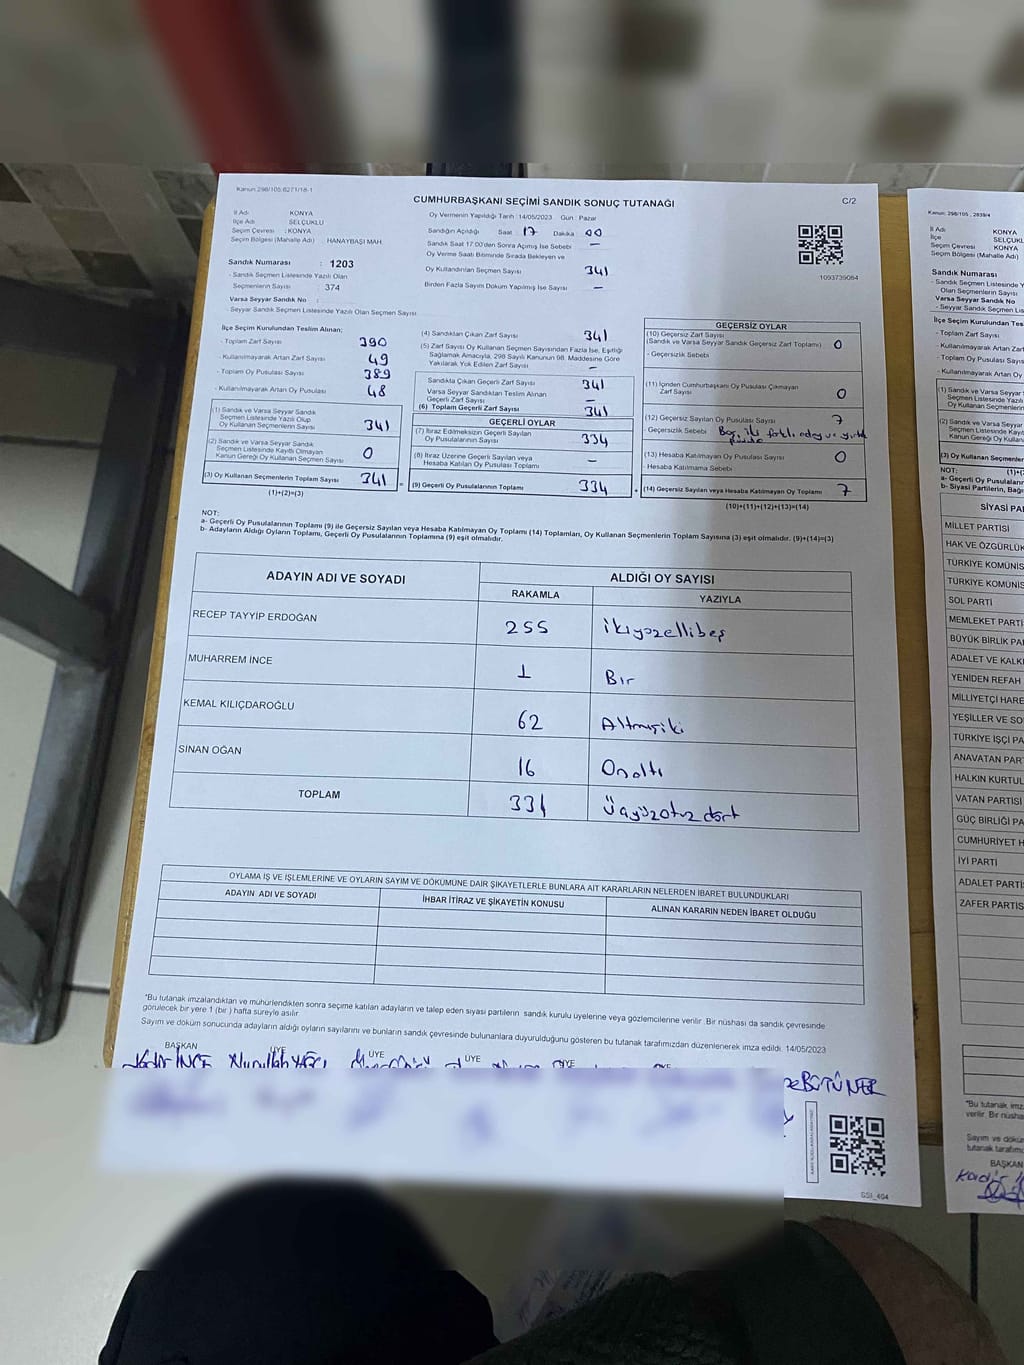 Kanun:298/105,6271/18-1
CUMHURBAŞKANI SEÇİMİ SANDIK SONUÇ TUTANAĞI
C/2
İl Adı KONYA
İlçe Adı SELÇUKLU
Seçim Çevresi : KONYA
Seçim Bölgesi (Mahalle Adı) HANAYBAŞI MAH.
Sandık Numarası : 1203
- Sandık Seçmen Listesinde Yazılı Olan
Seçmenlerin Sayısı : 374
Varsa Seyyar Sandık No :
- Seyyar Sandık Seçmen Listesinde Yazılı Olan Seçmen Sayısı
Oy Vermenin Yapıldığı Tarih :14/05/2023 Gün : Pazar
Sandığın Açıldığı Saat 17 Dakika 00
Sandık Saat 17:00'den Sonra Açımış İse Sebebi —
Oy Verme Saati Bitiminde Sırada Bekleyen ve
Oy Kullandırılan Seçmen Sayısı 341
Birden Fazla Sayım Döküm Yapılmış İse Sayısı —
1093739084
İlçe Seçim Kurulundan Teslim Alınan;
- Toplam Zarf Sayısı 390
- Kullanılmayarak Artan Zarf Sayısı 49
- Toplam Oy Pusulası Sayısı 389
- Kullanılmayarak Artan Oy Pusulası 48
(1) Sandık ve Varsa Seyyar Sandık
Seçmen Listesinde Yazılı Olup
Oy Kullanan Seçmenlerin Sayısı 341
(2) Sandık ve Varsa Seyyar Sandık
Seçmen Listesinde Kayıtlı Olmayan
Kanun Gereği Oy Kullanan Seçmen Sayısı 0
(3) Oy Kullanan Seçmenlerin Toplam Sayısı 341
(1)+(2)=(3)
(4) Sandıktan Çıkan Zarf Sayısı 341
(5) Zarf Sayısı Oy Kullanan Seçmen Sayısından Fazla İse, Eşitliği
Sağlamak Amacıyla, 298 Sayılı Kanunun 98. Maddesine Göre
Yakılarak Yok Edilen Zarf Sayısı —
Sandıkta Çıkan Geçerli Zarf Sayısı 341
Varsa Seyyar Sandıktan Teslim Alınan
Geçerli Zarf Sayısı —
(6) Toplam Geçerli Zarf Sayısı 341
GEÇERLİ OYLAR
(7) İtiraz Edilmeksizin Geçerli Sayılan
Oy Pusulalarının Sayısı 334
(8) İtiraz Üzerine Geçerli Sayılan veya
Hesaba Katılan Oy Pusulası Toplamı —
= (9) Geçerli Oy Pusulalarının Toplamı 334
GEÇERSİZ OYLAR
(10) Geçersiz Zarf Sayısı
(Sandık ve Varsa Seyyar Sandık Geçersiz Zarf Toplamı) 0
- Geçersizlik Sebebi
(11) İçinden Cumhurbaşkanı Oy Pusulası Çıkmayan
Zarf Sayısı 0
(12) Geçersiz Sayılan Oy Pusulası Sayısı 7
- Geçersizlik Sebebi Boş, iki farklı aday ve yırtık
(13) Hesaba Katılmayan Oy Pusulası Sayısı 0
- Hesaba Katılmama Sebebi
+ (14) Geçersiz Sayılan veya Hesaba Katılmayan Oy Toplamı 7
(10)+(11)+(12)+(13)=(14)
NOT:
a- Geçerli Oy Pusulaların Toplamı (9) ile Geçersiz Sayılan veya Hesaba Katılmayan Oy Toplamı (14) Toplamları, Oy Kullanan Seçmenlerin Toplam Sayısına (3) eşit olmalıdır. (9)+(14)=(3)
b- Adayların Aldığı Oyların Toplamı, Geçerli Oy Pusulalarının Toplamına (9) eşit olmalıdır.
ADAYIN ADI VE SOYADI ALDIĞI OY SAYISI
RAKAMLA YAZIYLA
RECEP TAYYİP ERDOĞAN 255 ikiyüzellibeş
MUHARREM İNCE 1 Bir
KEMAL KILIÇDAROĞLU 62 Altmışiki
SİNAN OĞAN 16 Onaltı
TOPLAM 334 Üçyüzotuzdört
OYLAMA İŞ VE İŞLEMLERİNE VE OYLARIN SAYIM VE DÖKÜMÜNE DAİR ŞİKAYETLERLE BUNLARA AİT KARARLARIN NELERDEN İBARET BULUNDUKLARI
ADAYIN ADI VE SOYADI İHBAR İTİRAZ VE ŞİKAYETİN KONUSU ALINAN KARARIN NEDEN İBARET OLDUĞU
*Bu tutanak imzalandıktan ve mühürlendikten sonra seçime katılan adayların ve talep eden siyasi partilerin sandık kurulu üyelerine veya gözlemcilerine verilir. Bir nüshası da sandık çevresinde
görülecek bir yere 1 (bir ) hafta süreyle asılır.
Sayım ve döküm sonucunda adayların aldığı oyların sayılarını ve bunların sandık çevresinde bulunanlara duyurulduğunu gösteren bu tutanak tarafımızdan düzenlenerek imza edildi. 14/05/2023
BAŞKAN ÜYE ÜYE ÜYE ÜYE ÜYE
Kadir İNCE Nurullah BÜTÜNER
GSI_404
Kanun: 298/105 , 2839/4
İl Adı KONYA
İlçe SELÇUKL
Seçim Çevresi KONYA
Seçim Bölgesi (Mahalle Adı)
Sandık Numarası
- Sandık Seçmen Listesinde Y
Olan Seçmenlerin Sayısı
Varsa Seyyar Sandık No
- Seyyar Sandık Seçmen Liste
İlçe Seçim Kurulundan Tesli
- Toplam Zarf Sayısı
- Kullanılmayarak Artan Zarf
- Toplam Oy Pusulası Sayısı
- Kullanılmayarak Artan
(1) Sandık ve Varsa Seyyar
Seçmen Listesinde Yaz
Oy Kullanan Seçmenleri
(2) Sandık ve Varsa Seyyar
Seçmen Listesinde Kayıt
Kanun Gereği Oy Kullan
(3) Oy Kullanan Seçmenler
(1)+(
NOT:
a- Geçerli Oy Pusulaların
b- Siyasi Partilerin, Bağı
SİYASİ PA
MİLLET PARTİSİ
HAK VE ÖZGÜRLÜK
TÜRKİYE KOMÜNİS
TÜRKİYE KOMÜNİS
SOL PARTİ
MEMLEKET PARTİ
BÜYÜK BİRLİK PA
ADALET VE KALKI
YENİDEN REFAH
MİLLİYETÇİ HARE
YEŞİLLER VE SO
TÜRKİYE İŞÇİ PA
ANAVATAN PAR
HALKIN KURTUL
VATAN PARTİSİ
GÜÇ BİRLİĞİ PA
CUMHURİYET H
İYİ PARTİ
ADALET PARTİ
ZAFER PARTİS
*Bu tutanak imz
verilir. Bir nüsha
Sayım ve dökü
tutanak tarafımı
BAŞKAN
Kadir